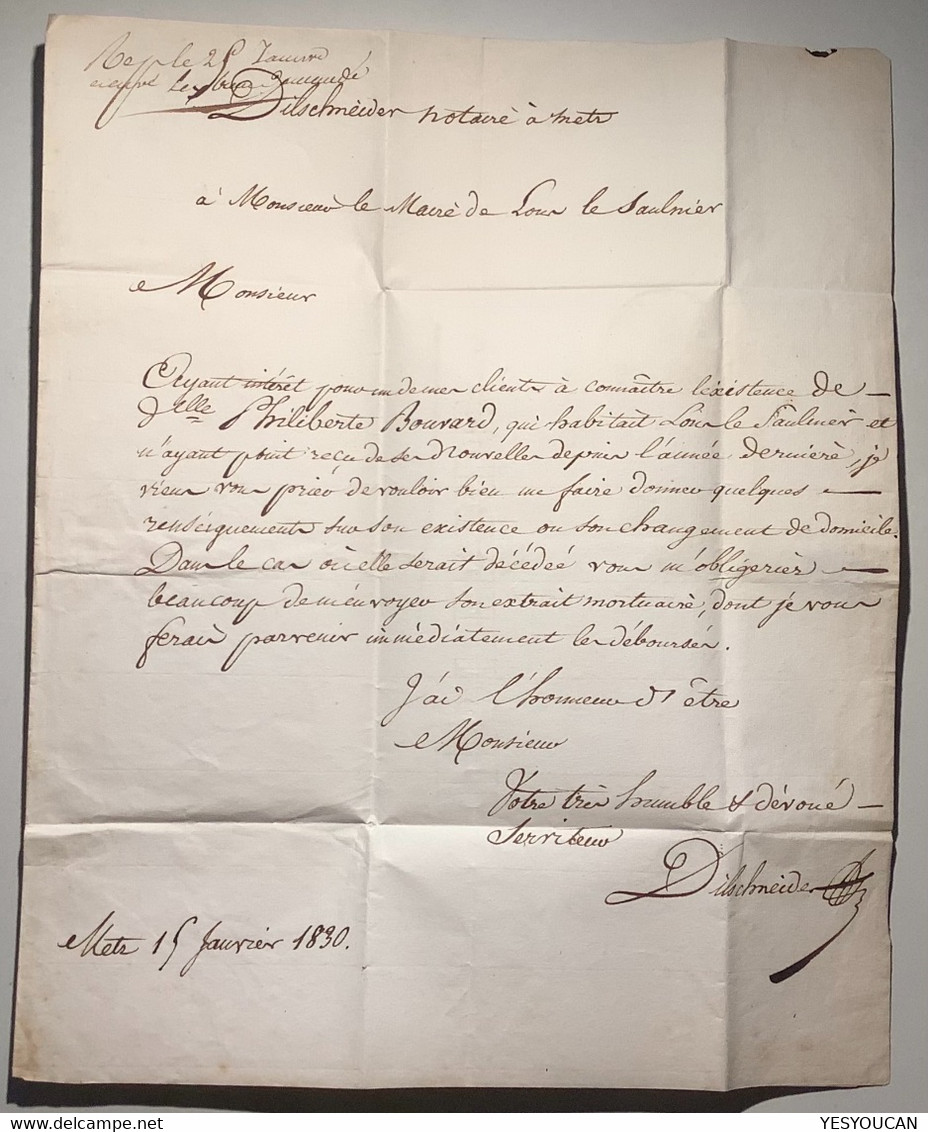 Rep le 25 Janvier
Dilschneider notaire à metz
à Monsieur le Maire de Lons le Saulnier
Monsieur
Ayant intérêt pour un de mes clients à connaître l'existence de
Delle Philiberte Bouvard, qui habitait Lons le Saulnier et
n'ayant point reçu de ses nouvelles depuis l'année dernière, je
viens vous prier de vouloir bien me faire donner quelques
renseignements sur son existence ou son changement de domicile.
Dans le cas où elle serait décédée vous m'obligeriez
beaucoup de m'envoyer son extrait mortuaire, dont je vous
ferais parvenir immédiatement les déboursés.
J'ai l'honneur d'être
Monsieur
Votre très humble & dévoué
Serviteur
Dilschneider
Metz 15 Janvier 1830.
www.delcampe.net
YESYOUCAN